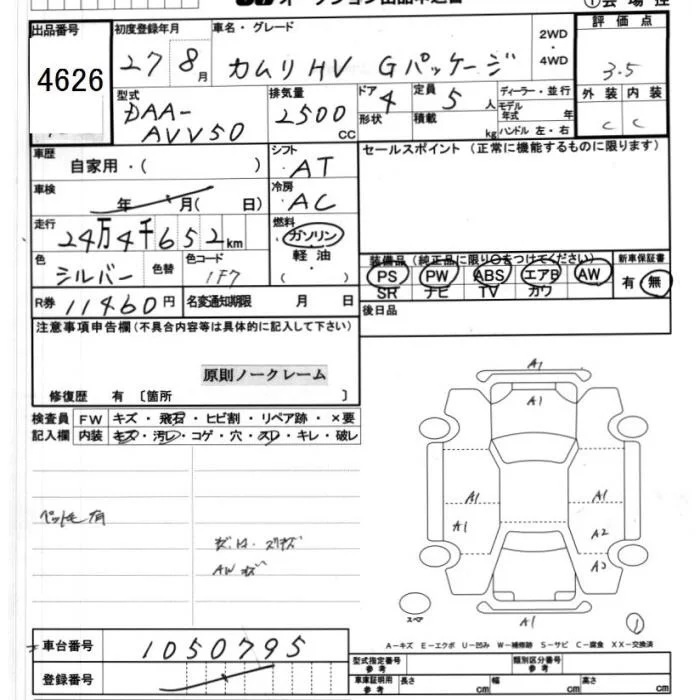 出品番号
4626
初度登録年月
27 8月
車名・グレード
カムリHV Gパッケージ
2WD
・
4WD
評価点
3.5
外装 内装
C C
型式
DAA-
AVV50
排気量
2500
CC
ドア
4
形状
定員
5人
積載
kg
ディーラー・並行
モデル
年式 年
ハンドル 左・右
車歴
自家用・( )
シフト
AT
セールスポイント (正常に機能するものに限ります)
車検
年 月( 日)
冷房
AC
走行
24万4千652km
燃料
ガソリン
軽油
・
( )
色
シルバー
色替
色コード
1F7
装備品(純正品に限り○をつけてください)
PS PW ABS エアB AW
SR ナビ TV カワ
新車保証書
有・無
R券 11460円
名変通知期限 月 日
後日品
注意事項申告欄(不具合内容等は具体的に記入して下さい)
原則ノークレーム
修復歴 有 〔箇所 〕
検査員
記入欄
FW キズ・飛石・ヒビ割・リペア跡・×要
内装 キズ・汚レ・コゲ・穴・スレ・キレ・破レ
ペット毛有
AWキズ
A1
A1
A1 A1
A1 A2
A2
A1
スペア
1
A-キズ E-エクボ U-凹み W-補修跡 S-サビ C-腐食 XX-交換済
車台番号
1050795
登録番号
型式指定番号
参考
類別区分番号
参考
車庫証明用
参考
長さ cm
幅 cm
高さ cm